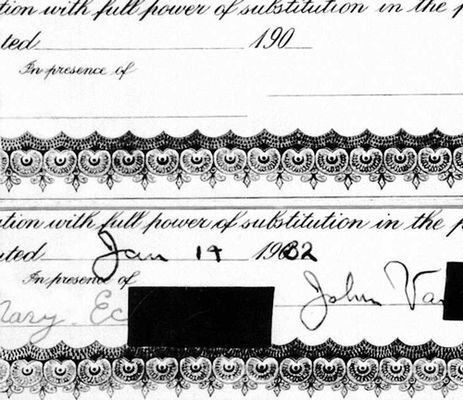 tion with full power of substitution in the p
ted 190
In presence of
ution with full power of substitution in the p
uted Jan 14 1932
In presence of John Va
Mary Ec